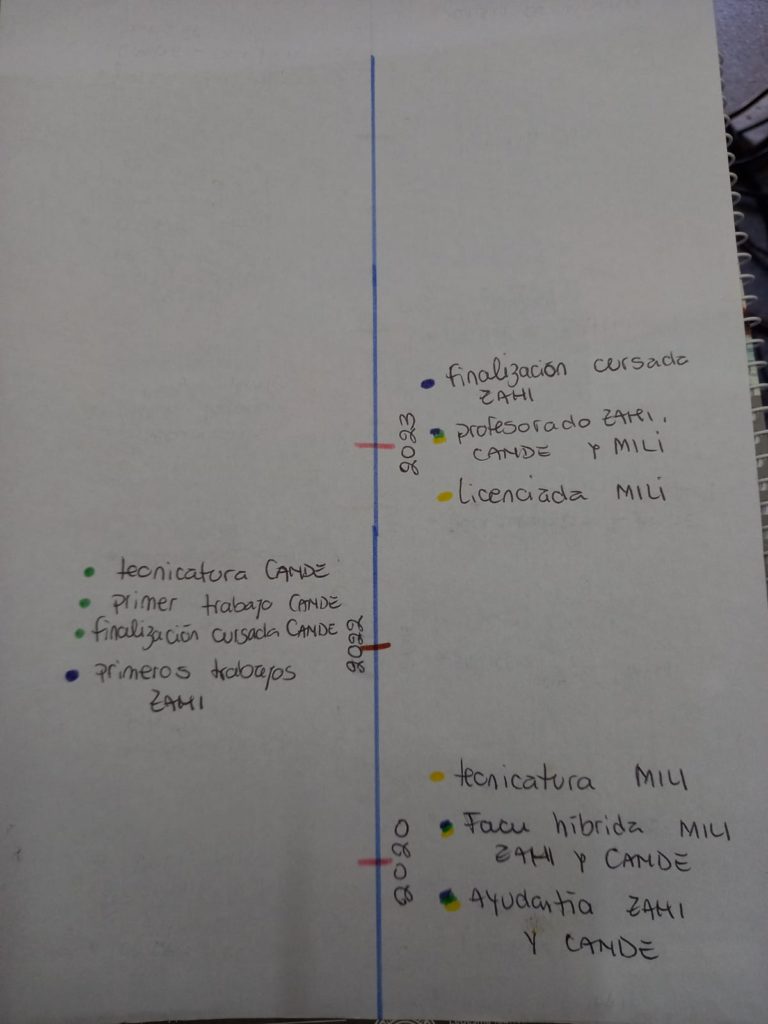 • finalización cursada
ZAHI
2023
• profesorado ZAHI,
CANDE Y MILI
• Licenciada MILI
• tecnicatura CANDE
• primer trabajo CANDE
• finalización cursada CANDE
2022
• primeros trabajos
ZAHI
• tecnicatura MILI
• Facu híbrida MILI
ZAHI Y CANDE
2020
• Ayudantía ZAHI
Y CANDE